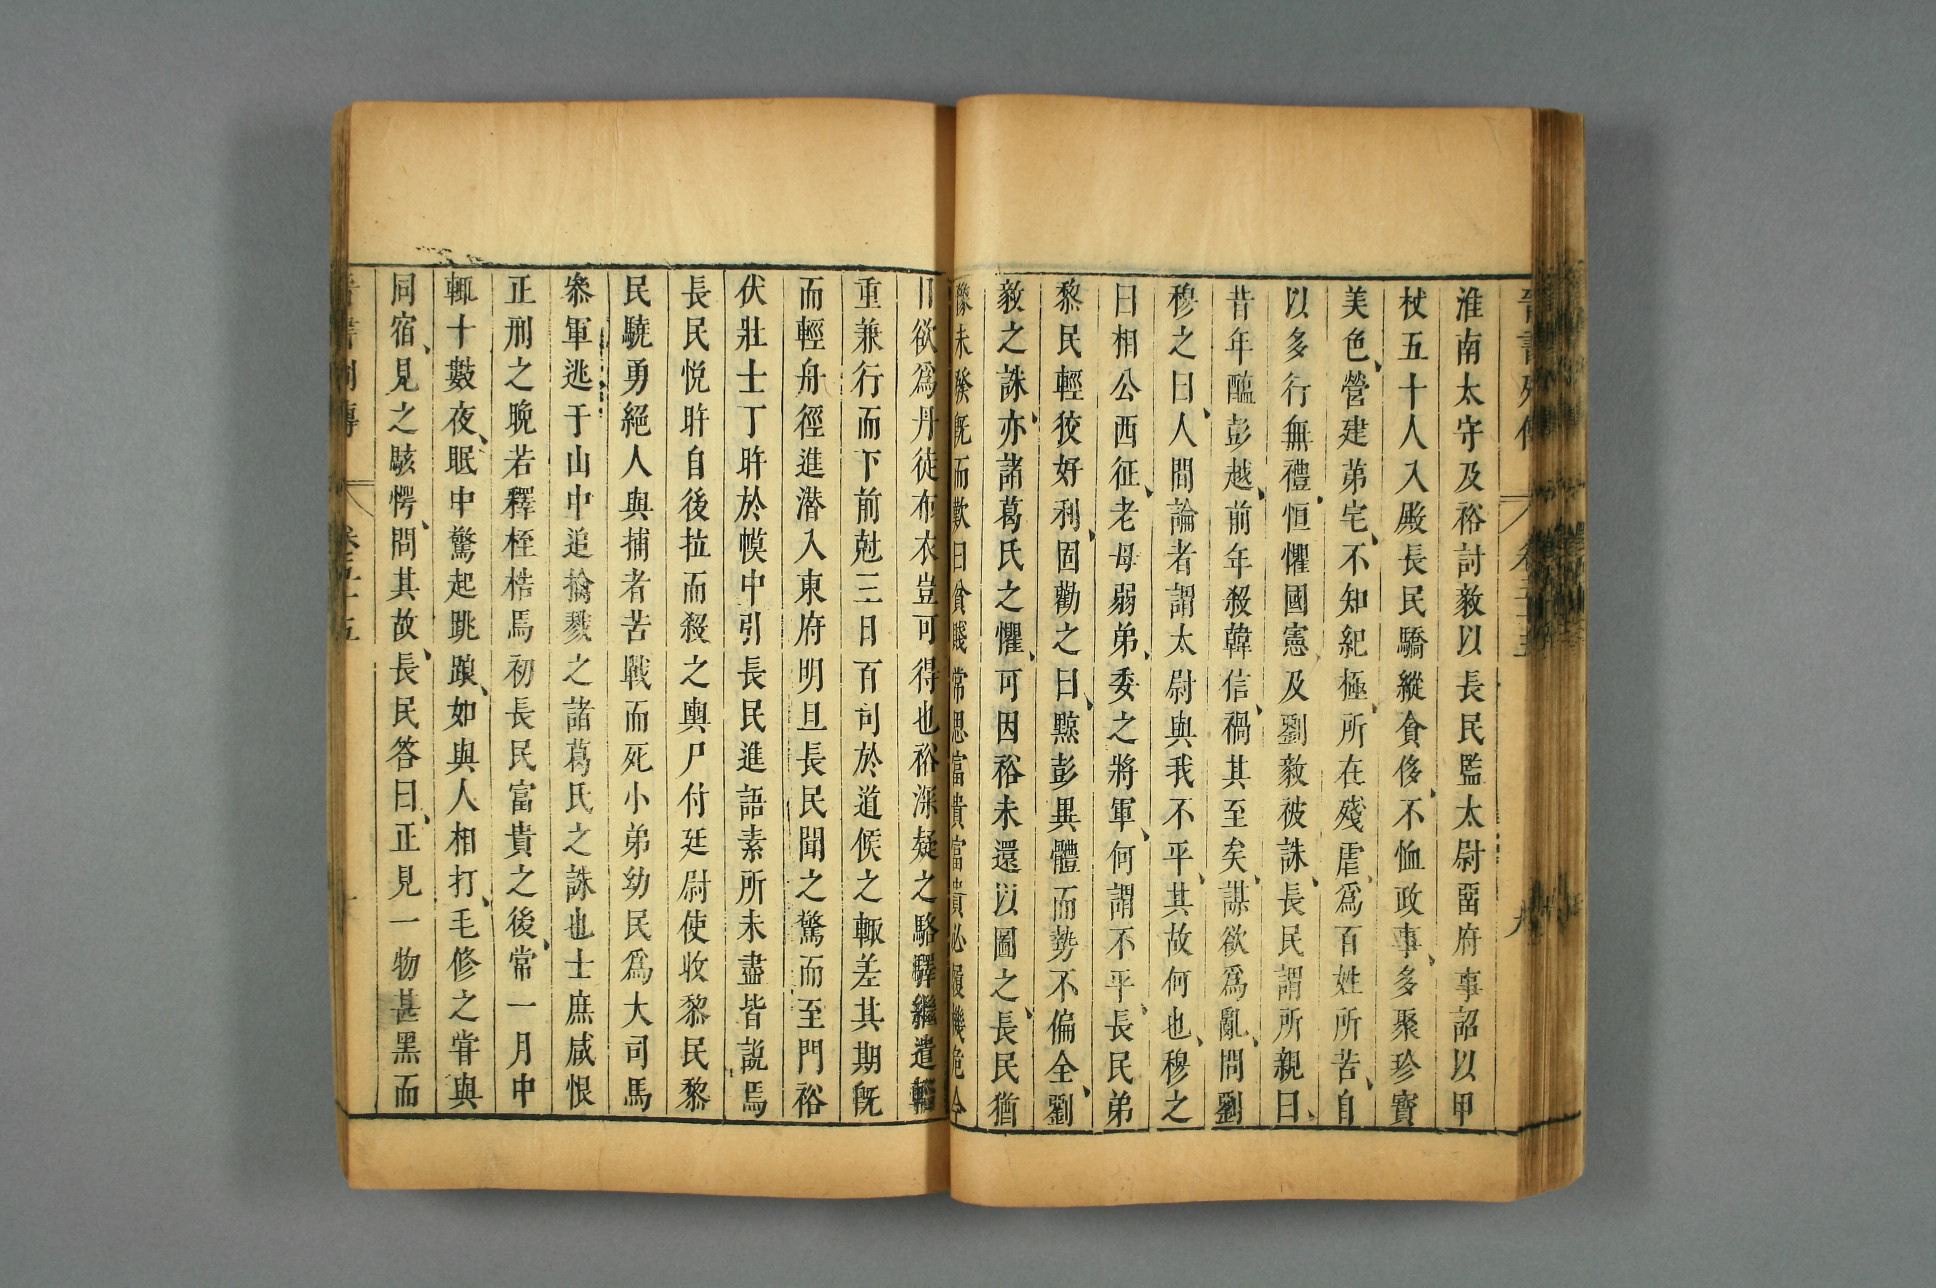 晉書列傳 卷五十五 九
淮南太守及裕討毅以長民監太尉畱府事詔以甲
杖五十人入殿長民驕縱貪侈不恤政事多聚珍寶
美色營建第宅不知紀極所在殘虐爲百姓所苦自
以多行無禮恒懼國憲及劉毅被誅長民謂所親曰
昔年醢彭越前年殺韓信禍其至矣謀欲爲亂問劉
穆之曰人間論者謂太尉與我不平其故何也穆之
曰相公西征老母弱弟委之將軍何謂不平長民弟
黎民輕狡好利固勸之曰黥彭異體而勢不偏全劉
毅之誅亦諸葛氏之懼可因裕未還以圖之長民猶
豫未發旣而歎曰貧賤常思富貴富貴必履機危今
日欲爲丹徒布衣豈可得也裕深疑之駱驛繼遣輜
重兼行而下前尅三日百司於道候之輙差其期旣
而輕舟徑進潛入東府明旦長民聞之驚而至門裕
伏壯士丁旿於幙中引長民進語素所未盡皆說焉
長民悅旿自後拉而殺之輿尸付廷尉使收黎民黎
民驍勇絕人與捕者苦戰而死小弟幼民爲大司馬
參軍逃于山中追擒戮之諸葛氏之誅也士庶咸恨
正刑之晚若釋桎梏焉初長民富貴之後常一月中
輙十數夜眠中驚起跳踉如與人相打毛修之甞與
同宿見之駭愕問其故長民答曰正見一物甚黑而
晉書列傳 卷五十五